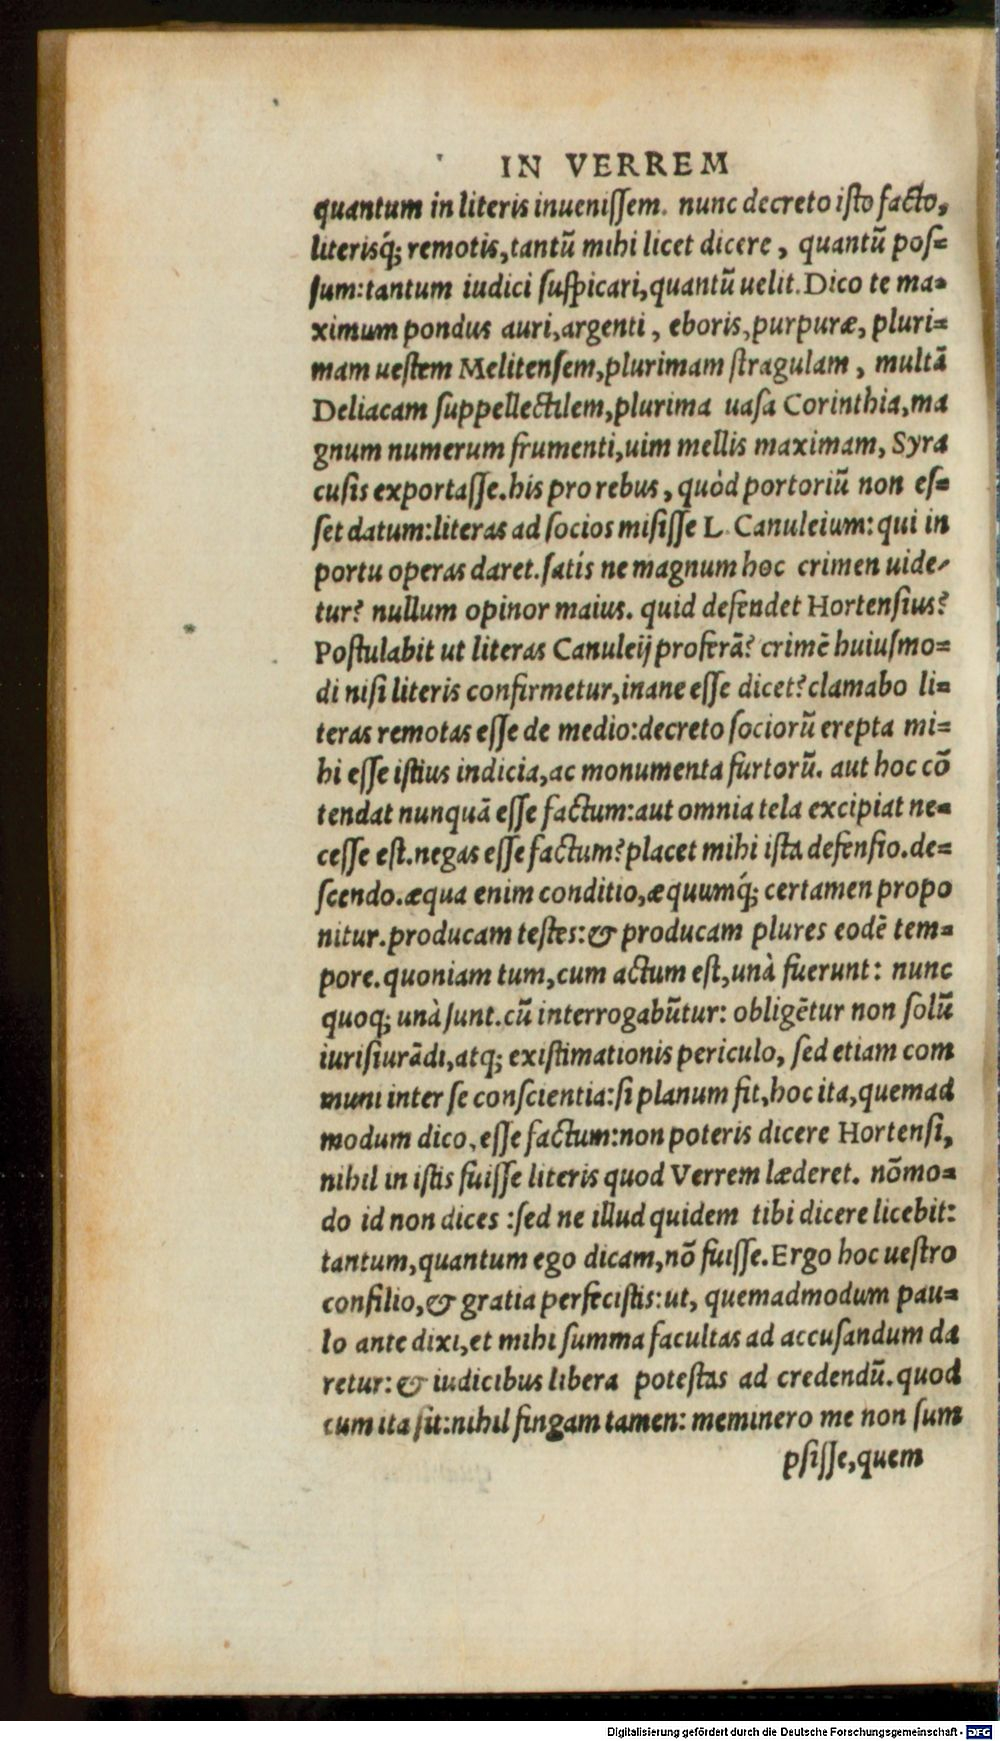 IN VERREM
quantum in literis inueniſſem. nunc decreto iſto facto,
literisq́; remotis,tantũ mihi licet dicere, quantũ poſ=
ſum:tantum iudici ſuſpicari,quantũ uelit.Dico te ma=
ximum pondus auri,argenti, eboris,purpuræ, pluri=
mam ueſtem Melitenſem,plurimam ſtragulam, multã
Deliacam ſuppellectilem,plurima uaſa Corinthia,ma
gnum numerum frumenti,uim mellis maximam, Syra
cuſis exportaſſe.his pro rebus, quòd portoriũ non eſ=
ſet datum:literas ad ſocios miſiſſe L. Canuleium: qui in
portu operas daret.ſatis ne magnum hoc crimen uide-
tur? nullum opinor maius. quid defendet Hortenſius?
Poſtulabit ut literas Canuleij proferã? crimẽ huiuſmo=
di niſi literis confirmetur,inane eſſe dicet?clamabo li=
teras remotas eſſe de medio:decreto ſociorũ erepta mi=
hi eſſe iſtius indicia,ac monumenta furtorũ. aut hoc cõ
tendat nunquã eſſe factum:aut omnia tela excipiat ne=
ceſſe eſt.negas eſſe factum?placet mihi iſta defenſio.de=
ſcendo.æqua enim conditio,æquumq́; certamen propo
nitur.producam teſtes:& producam plures eodẽ tem=
pore.quoniam tum,cum actum eſt,unà fuerunt: nunc
quoq; unà ſunt.cũ interrogabũtur: obligẽtur non ſolũ
iuriſiurãdi,atq; exiſtimationis periculo, ſed etiam com
muni inter ſe conſcientia:ſi planum fit,hoc ita,quemad
modum dico,eſſe factum:non poteris dicere Hortenſi,
nihil in iſtis fuiſſe literis quod Verrem læderet. nõmo=
do id non dices :ſed ne illud quidem tibi dicere licebit:
tantum,quantum ego dicam,nõ fuiſſe.Ergo hoc ueſtro
conſilio,& gratia perfeciſtis:ut, quemadmodum pau=
lo ante dixi,et mihi ſumma facultas ad accuſandum da
retur:& iudicibus libera poteſtas ad credendũ.quod
cum ita ſit:nihil fingam tamen: meminero me non ſum
pſiſſe,quem
Digitalisierung gefördert durch die Deutsche Forschungsgemeinschaft - DFG